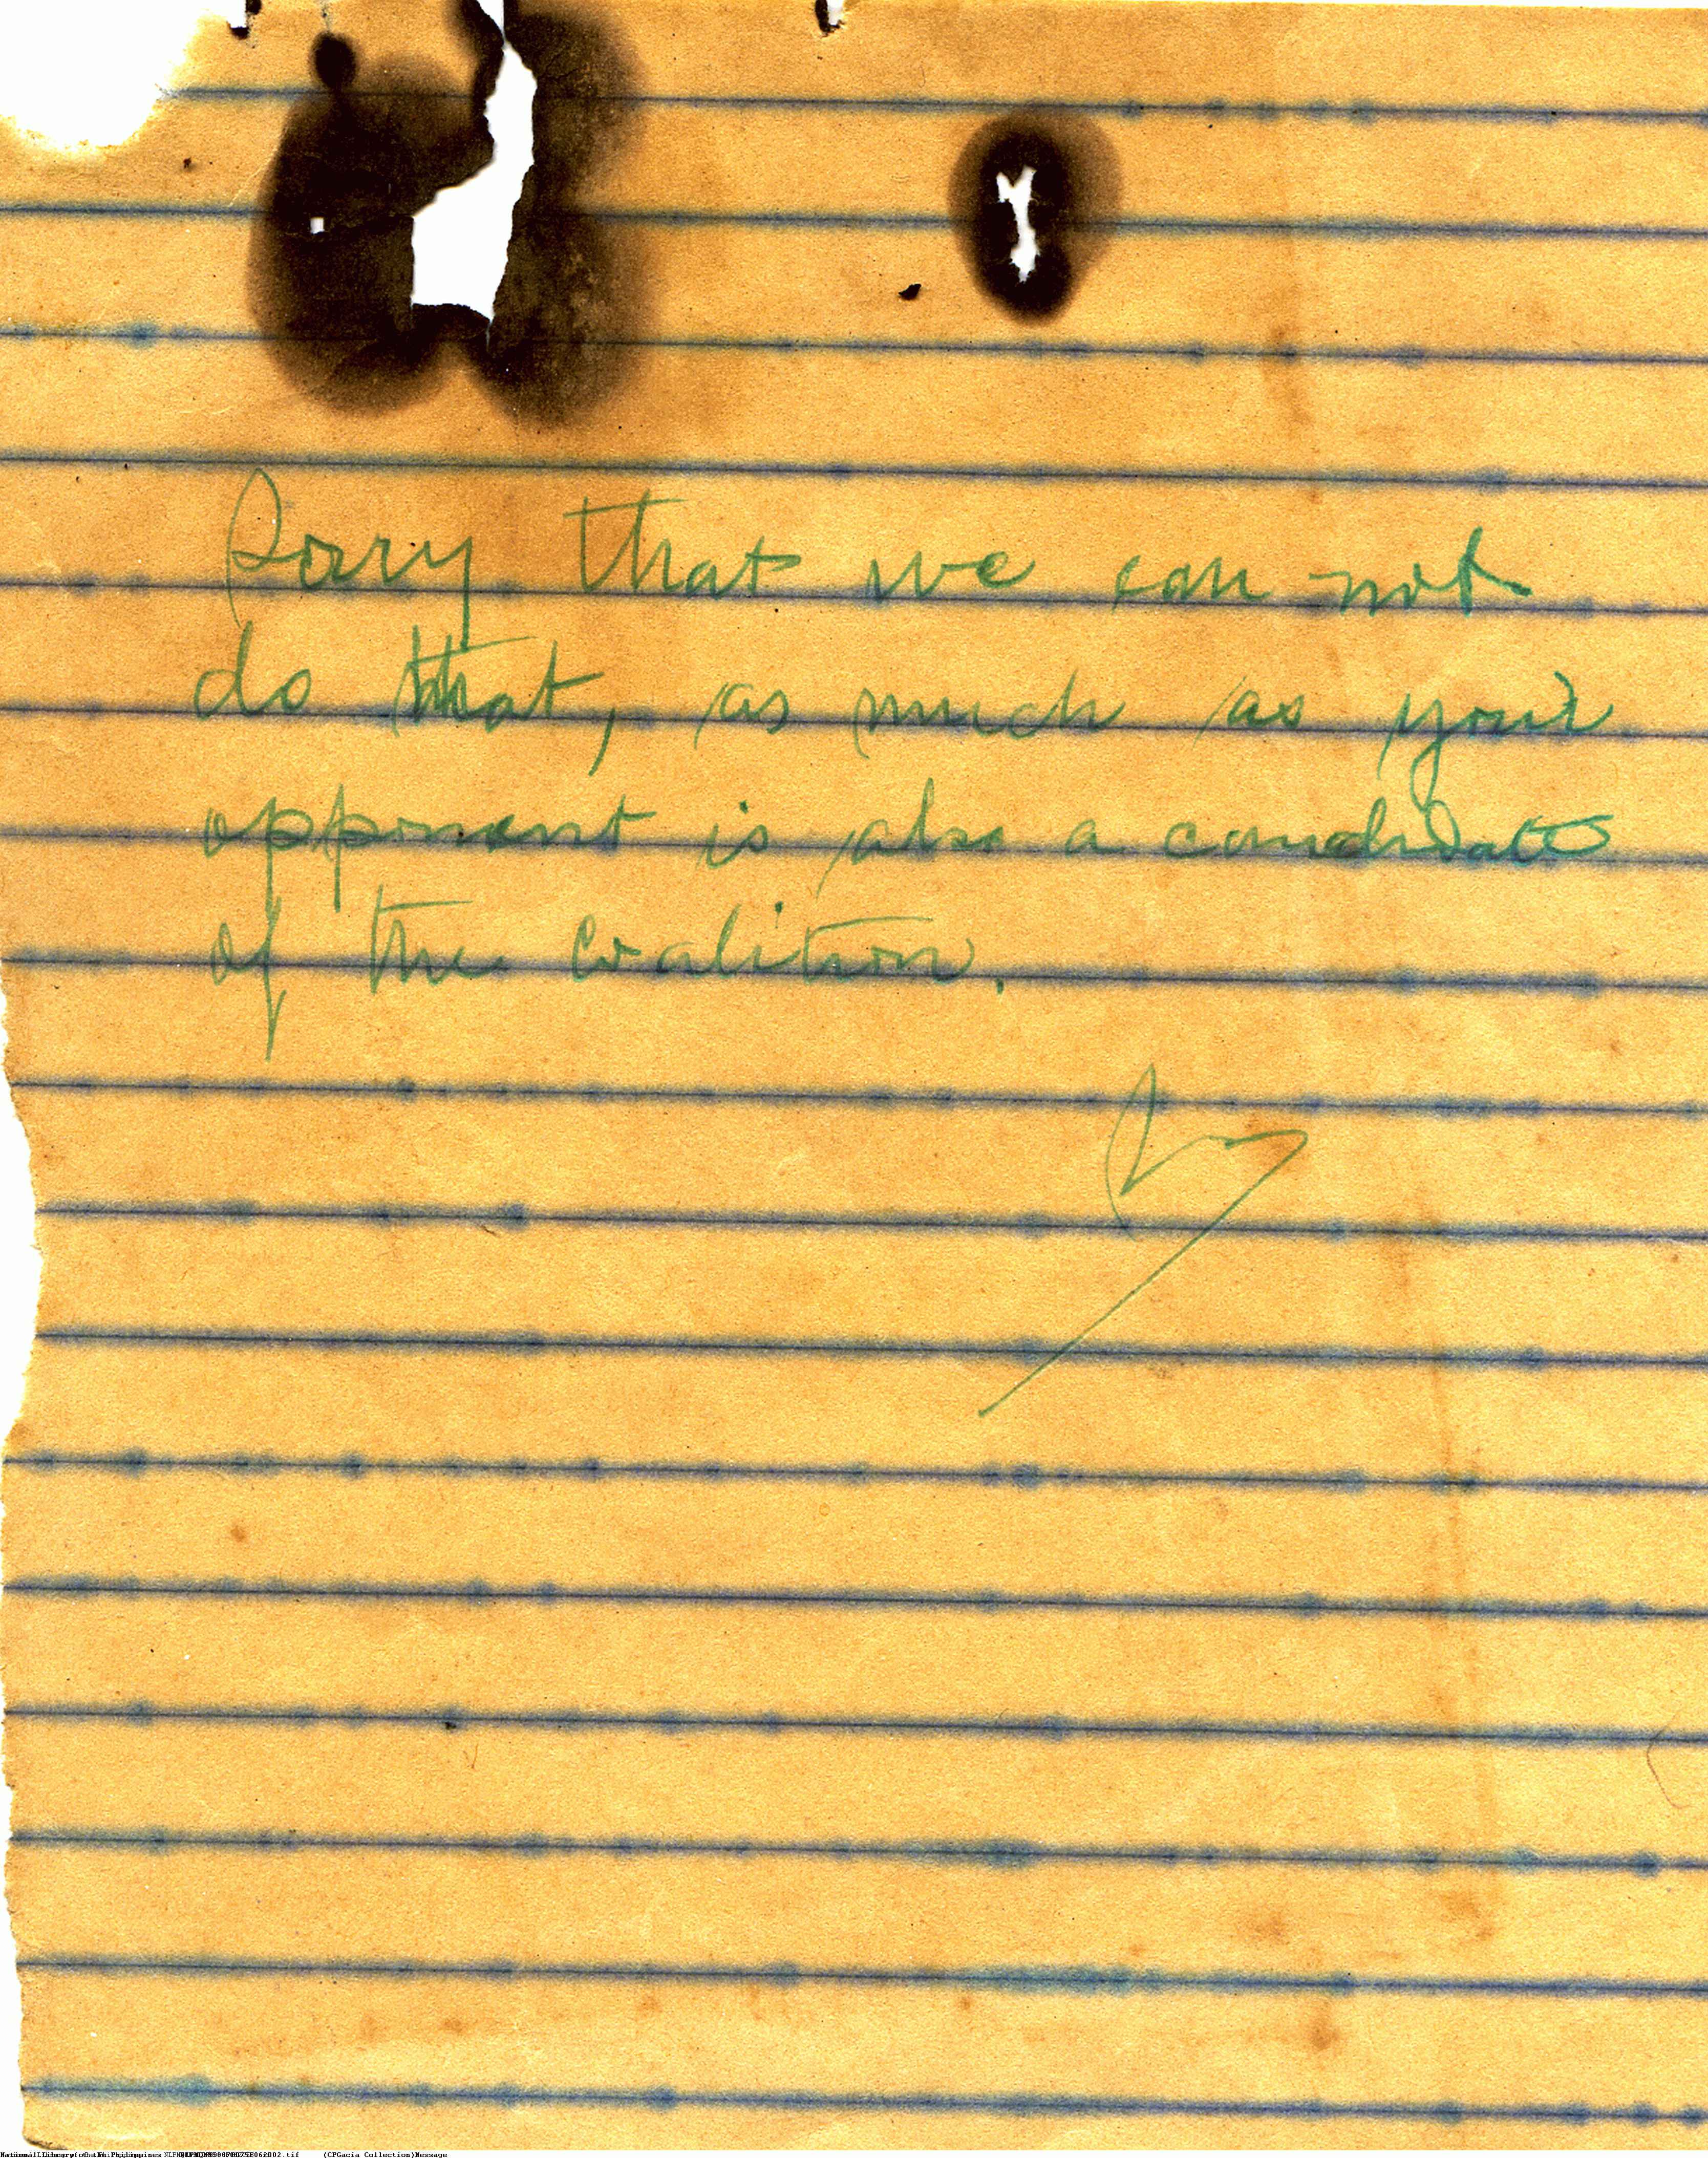 Sorry that we can not
do that, as much as your
opponent is also a candidate
of the coalition.
National Library of the Philippines
(CPGacia Collection)Message